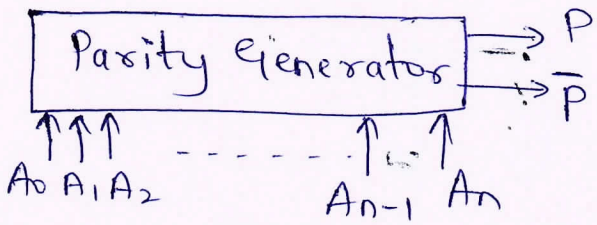 Parity Generator
P
P̅
A₀ A₁ A₂ Aₙ₋₁ Aₙ